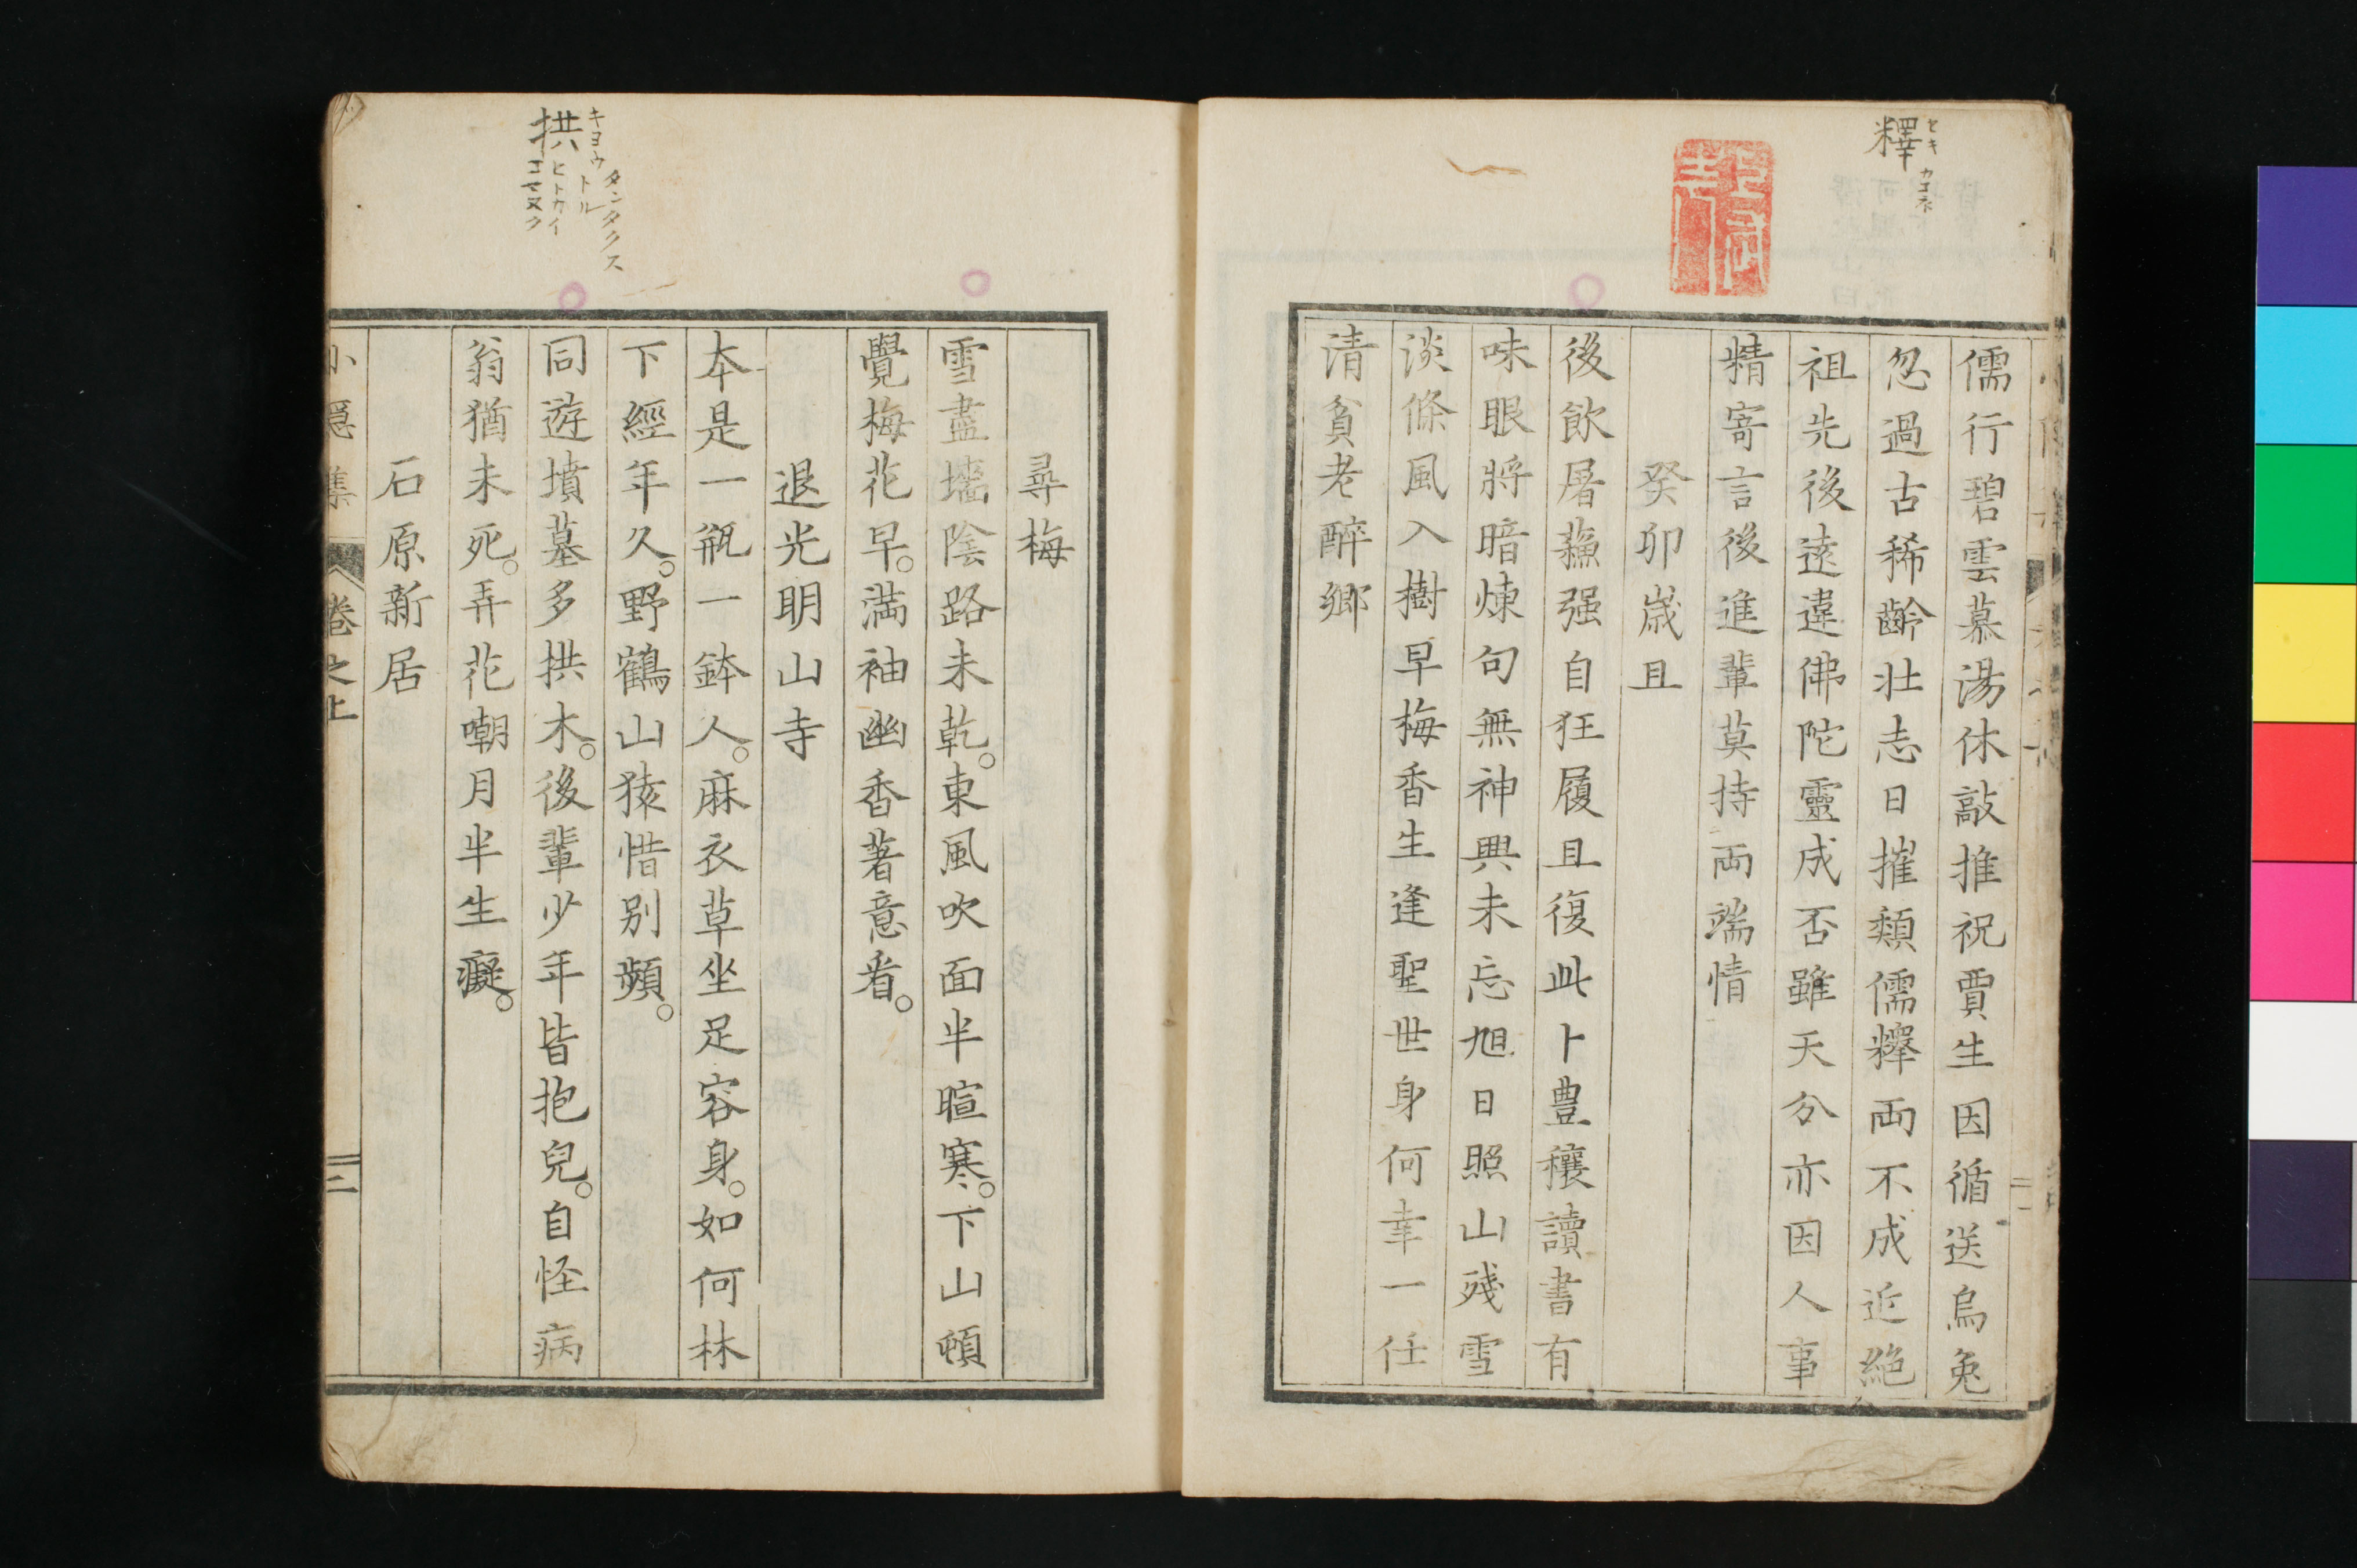 釋
セキ
儒行碧雲慕湯休敲推祝賈生因循送烏兔
忽過古稀齡壯志日摧頽儒釋両不成近絶
祖先後遠違佛陀靈成否雖天分亦因人事
精寄言後進輩莫持両端情
癸卯歳旦
後飲屠蘓强自狂履且復此卜豊穰讀書有
味眼將暗煉句無神興未忘旭日照山残雪
淡條風入樹早梅香生逢聖世身何幸一任
清貧老醉鄉
拱
キヨウ
タンタクス
トル
ヒトカイ
コマヌク
尋梅
雪盡墻陰路未乾。東風吹面半暄寒。下山頓
覺梅花早。満袖幽香著意看。
退光明山寺
本是一瓶一鉢人。麻衣草坐足容身。如何林
下經年久。野鶴山猿惜别頻。
同遊墳墓多拱木。後輩少年皆抱兒。自怪病
翁猶未死。弄花嘲月半生癡。
石原新居
小隱集 卷之上 二